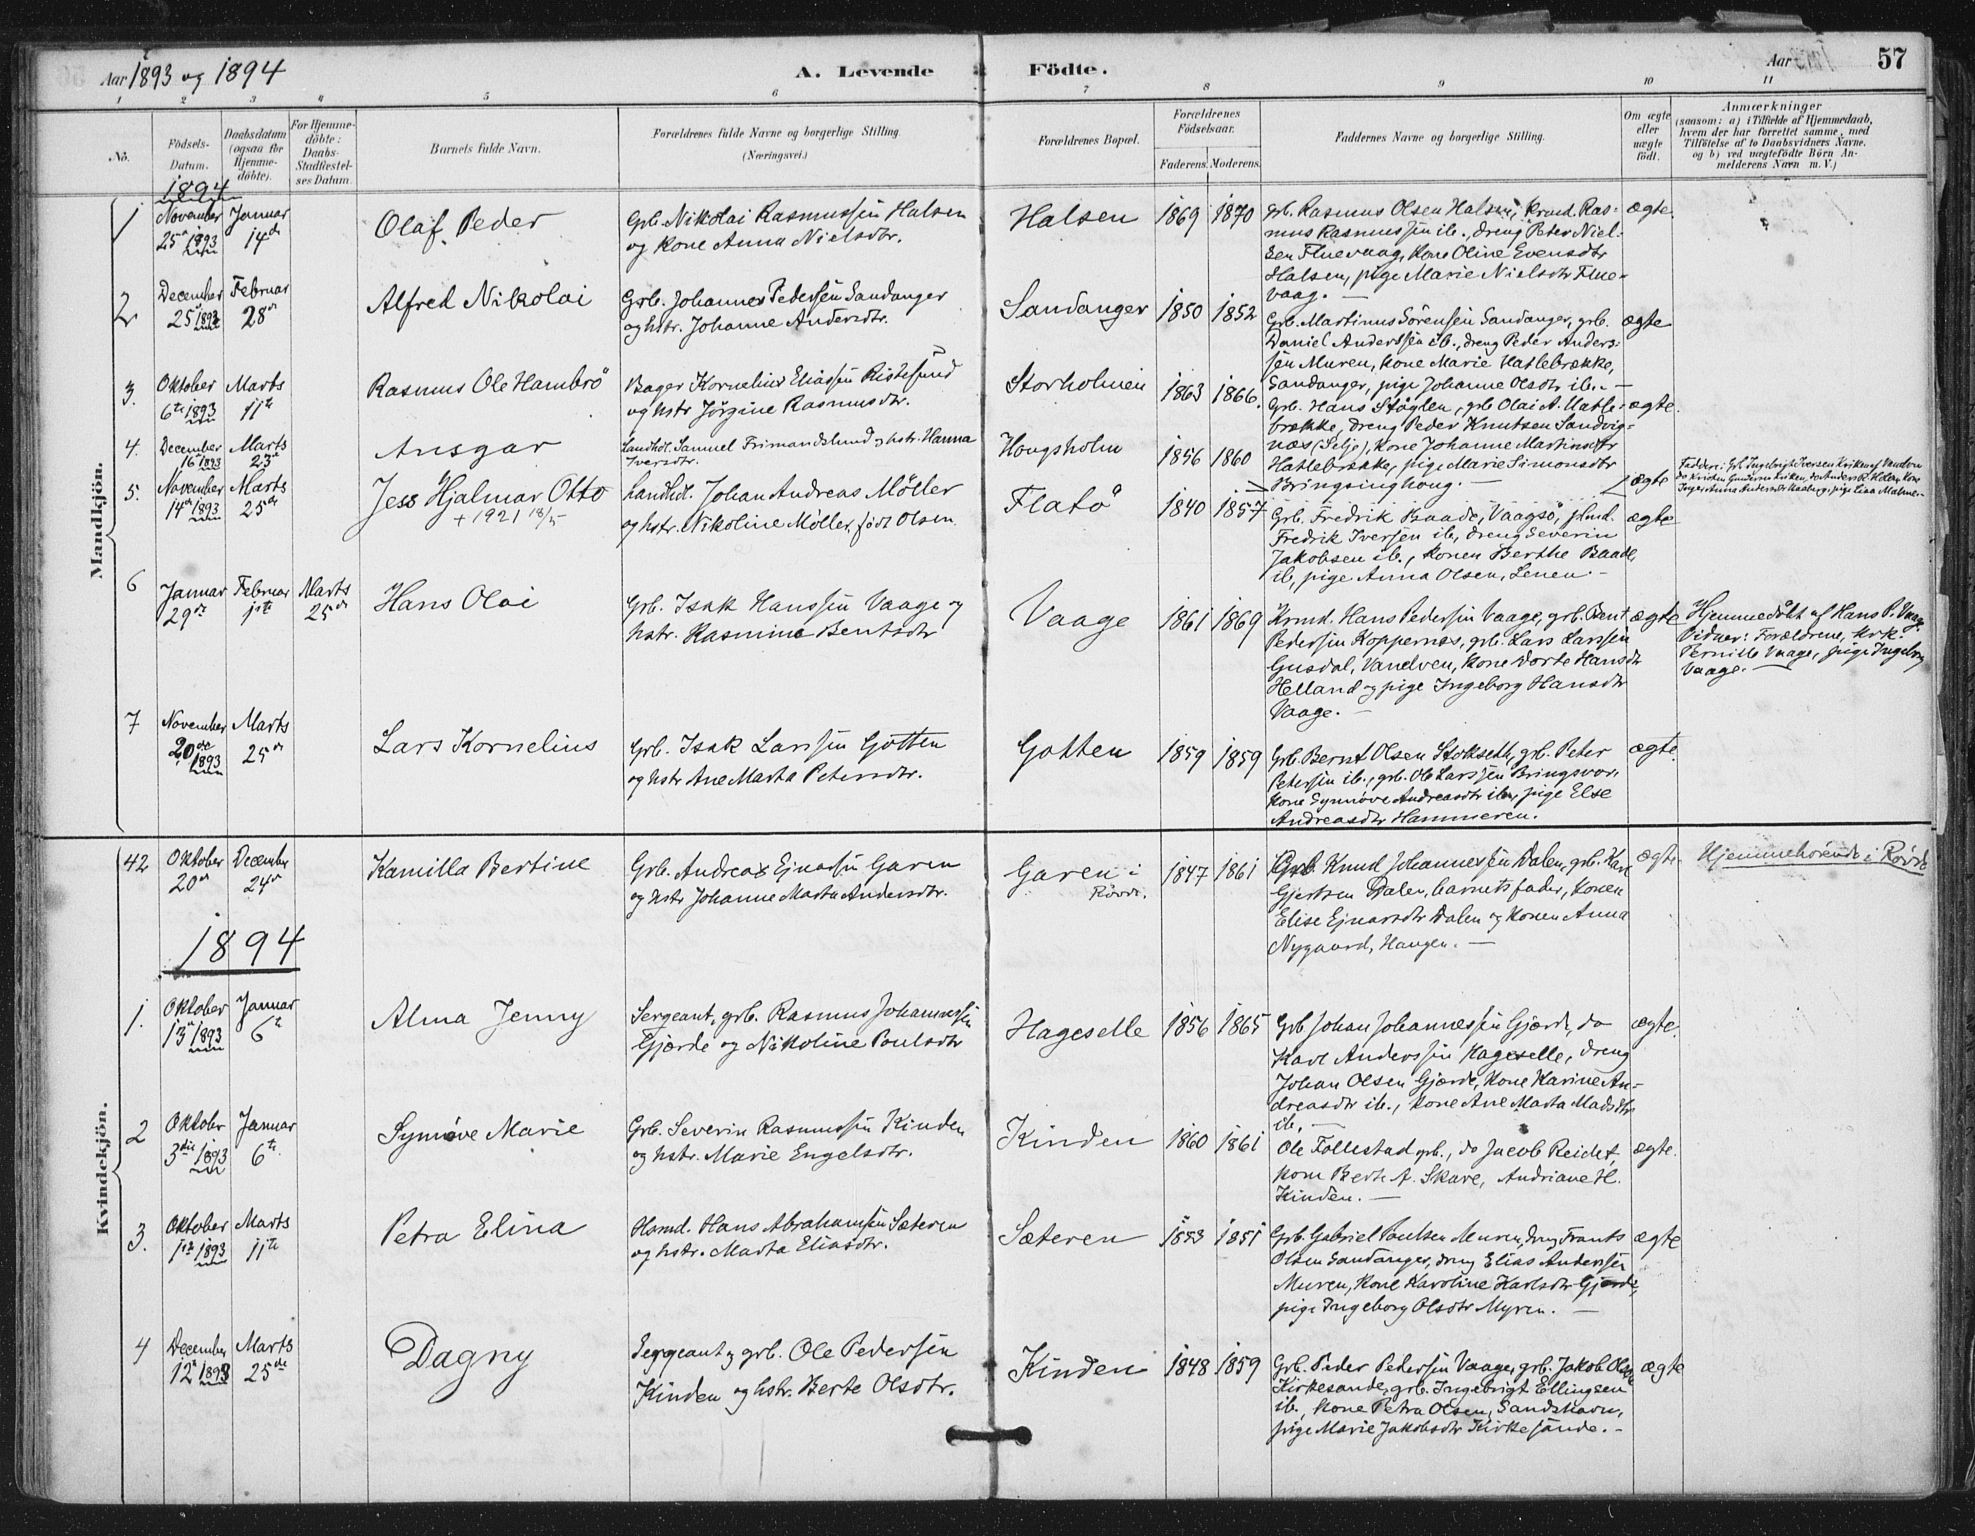 Aar 1893 og 1894
A. Levende Födte.
Aar
57
1 2 3 4 5 6 7 8 9 10 11
No.
Födsels-
Datum.
Daabsdatum
(ogsaa for
Hjemme-
döbte).
For Hjemme-
döbte:
Daabs-
Stadfæstel-
ses Datum.
Barnets fulde Navn.
Forældrenes fulde Navne og borgerlige Stilling.
(Næringsvei.)
Forældrenes Bopæl.
Forældrenes
Födselsaar.
Faderens. Moderens.
Faddernes Navne og borgerlige Stilling.
Om ægte
eller
uægte
födt.
Anmærkninger
(saasom: a) i Tilfælde af Hjemmedaab,
hvem der har forrettet samme, med
Tilföielse af to Daabsvidners Navne,
og b) ved uægtefödte Börn An-
melderens Navn m. V.)
1894
Mandkjön.
1 November Januar
25 1893 14de
Olaf Peder
Grb. Nikolai Rasmussen Halsen
og kone Anna Nielsdtr.
Halsen 1869 1870
grb. Rasmus Olsen Halsen, krmd. Ras-
mus Rasmussen ib., dreng Peter Niel-
sen Fluevaag, kone Oline Evensdtr
Halsen, pige Marie Nielsdtr Flue-
vaag. —
ægte.
2 December Februar
25 1893 28
Alfred Nikolai
Grb. Johannes Pedersen Sandanger
og hstr. Johanne Andersdtr.
Sandanger 1850 1852
Grb. Martinus Sörensen Sandanger, grb.
Daniel Anderssen ib., dreng Peder Anders-
sen Muren, kone Marie Hatlebrække,
Sandanger, pige Johanne Olsdtr ib. —
ægte
3. Oktober Marts
6te 1893 11te
Rasmus Ole Hambrö
Bager Kornelius Eliassen Ristesund
og hstr Jörgine Rasmusdtr.
Storholmen 1863 1866.
Grb. Hans Stöylen, grb Olai A. Hatle-
brække, dreng Peder Knutsen Sandvig-
næs (Selje), kone Johanne Martinsdtr
Hatlebrække, pige Marie Simonsdtr
Bringsinghoug. —
ægte.
4. December Marts
16 1893 23
Ansgar
Landhdl. Samuel Frimandslund og hstr. Hanna
Iversdtr.
Hougsholm 1856 1860
ægte
5. November Marts
14 1893 25de
Jess Hjalmar Otto
+ 1921 18/5
Landhdl. Johan Andreas Möller
og hstr. Nikoline Möller, födt Olsen.
Flatö 1840 1857
Grb. Fredrik Baade, Vaagsö,
Fredrik Iversen ib., dreng Severin
Jakobsen ib., konen Berthe Baade,
ib, pige Anna Olsen, Lenen. —
ægte
6 Januar Februar Marts
29de 1ste 25de
Hans Olai
Grb. Isak Hanssen Vaage og
hstr. Rasmine Bentsdtr
Vaage 1861 1869
Krmd. Hans Pedersen Vaage, grb. Bent
Pedersen Koppernæs, grb. Lars Larssen
Gusdal, Vandven, kone Dorte Hansdtr
Helland og pige Ingeborg Hansdtr
Vaage. —
ægte
Hjemmedöbt af Hans P. Vaage.
Vidner: Forældrene, krk.
Pernille Vaage, pige Ingeborg
Vaage. —
7 November Marts
20de 1893 25
Lars Kornelius
Grb. Isak Larssen Gotten
og hstr Ane Marta Petersdtr.
Gotten 1859 1859
Grb. Bernt Olsen Stokseth, grb. Peter
Petersen ib., grb. Ole Larssen Bringsvor,
kone Synnöve Andreasdtr ib., pige Else
Andreasdtr Hammeren.
ægte.
Kvindekjön.
42 Oktober December
20 24
Kamilla Bertine
Grb. Andreas Ejnarsen Garen
og hstr Johanne Marta Andersdtr.
Garen i
Rövde.
1847 1861
Grb. Knud Johannessen Dalen, grb. Karl
Gjertsen Dalen, barnets fader, konen
Elise Ejnarsdtr Dalen og konen Anna
Nygaard, Haugen. —
ægte.
Hjemmehörende i Rövde
1894
1. Oktober Januar
13 1893 6te
Alma Jenny
Sergeant, grb. Rasmus Johannessen
Gjærde og Nikoline Poulsdtr
Hageselle 1856 1865
Grb Johan Johannessen Gjærde, do
Karl Anderssen Hageselle, dreng
Johan Olsen Gjærde, kone Karine An-
dreasdtr ib., kone Ane Marta Madsdtr
ib. —
ægte.
2 Oktober Januar
3die 1893 6te
Synöve Marie
Grb. Severin Rasmussen Kinden
og hstr. Marie Engelsdtr.
Kinden 1860 1861
Ole Follestad grb., do Jacob Reidet,
kone Berte A. Skare, Andriane H.
Kinden. —
ægte.
3. Oktober Marts
1ste 1893 11te
Petra Elina
Hans Abrahamsen Sæteren
og hstr. Marta Eliasdtr.
Sæteren 1853 1851
Grb. Gabriel Poulsen Muren, dreng Frants
Olsen Sandanger, dreng Elias Andersen
Muren, kone Karoline Karlsdtr Gjærde,
pige Ingeborg Olsdtr Myren. —
ægte
4 December Marts
12 1893 25de
Dagny
Sergeant og grb. Ole Pedersen
Kinden og hstr. Berte Olsdtr.
Kinden 1848 1859
Grb. Peder Pedersen Vaage, grb. Jakob Olsen
Kirkesande, grb. Ingebrigt Ellingsen
ib., kone Petra Olsen, Sandshavn,
pige Marie Jakobsdtr Kirkesande. —
ægte